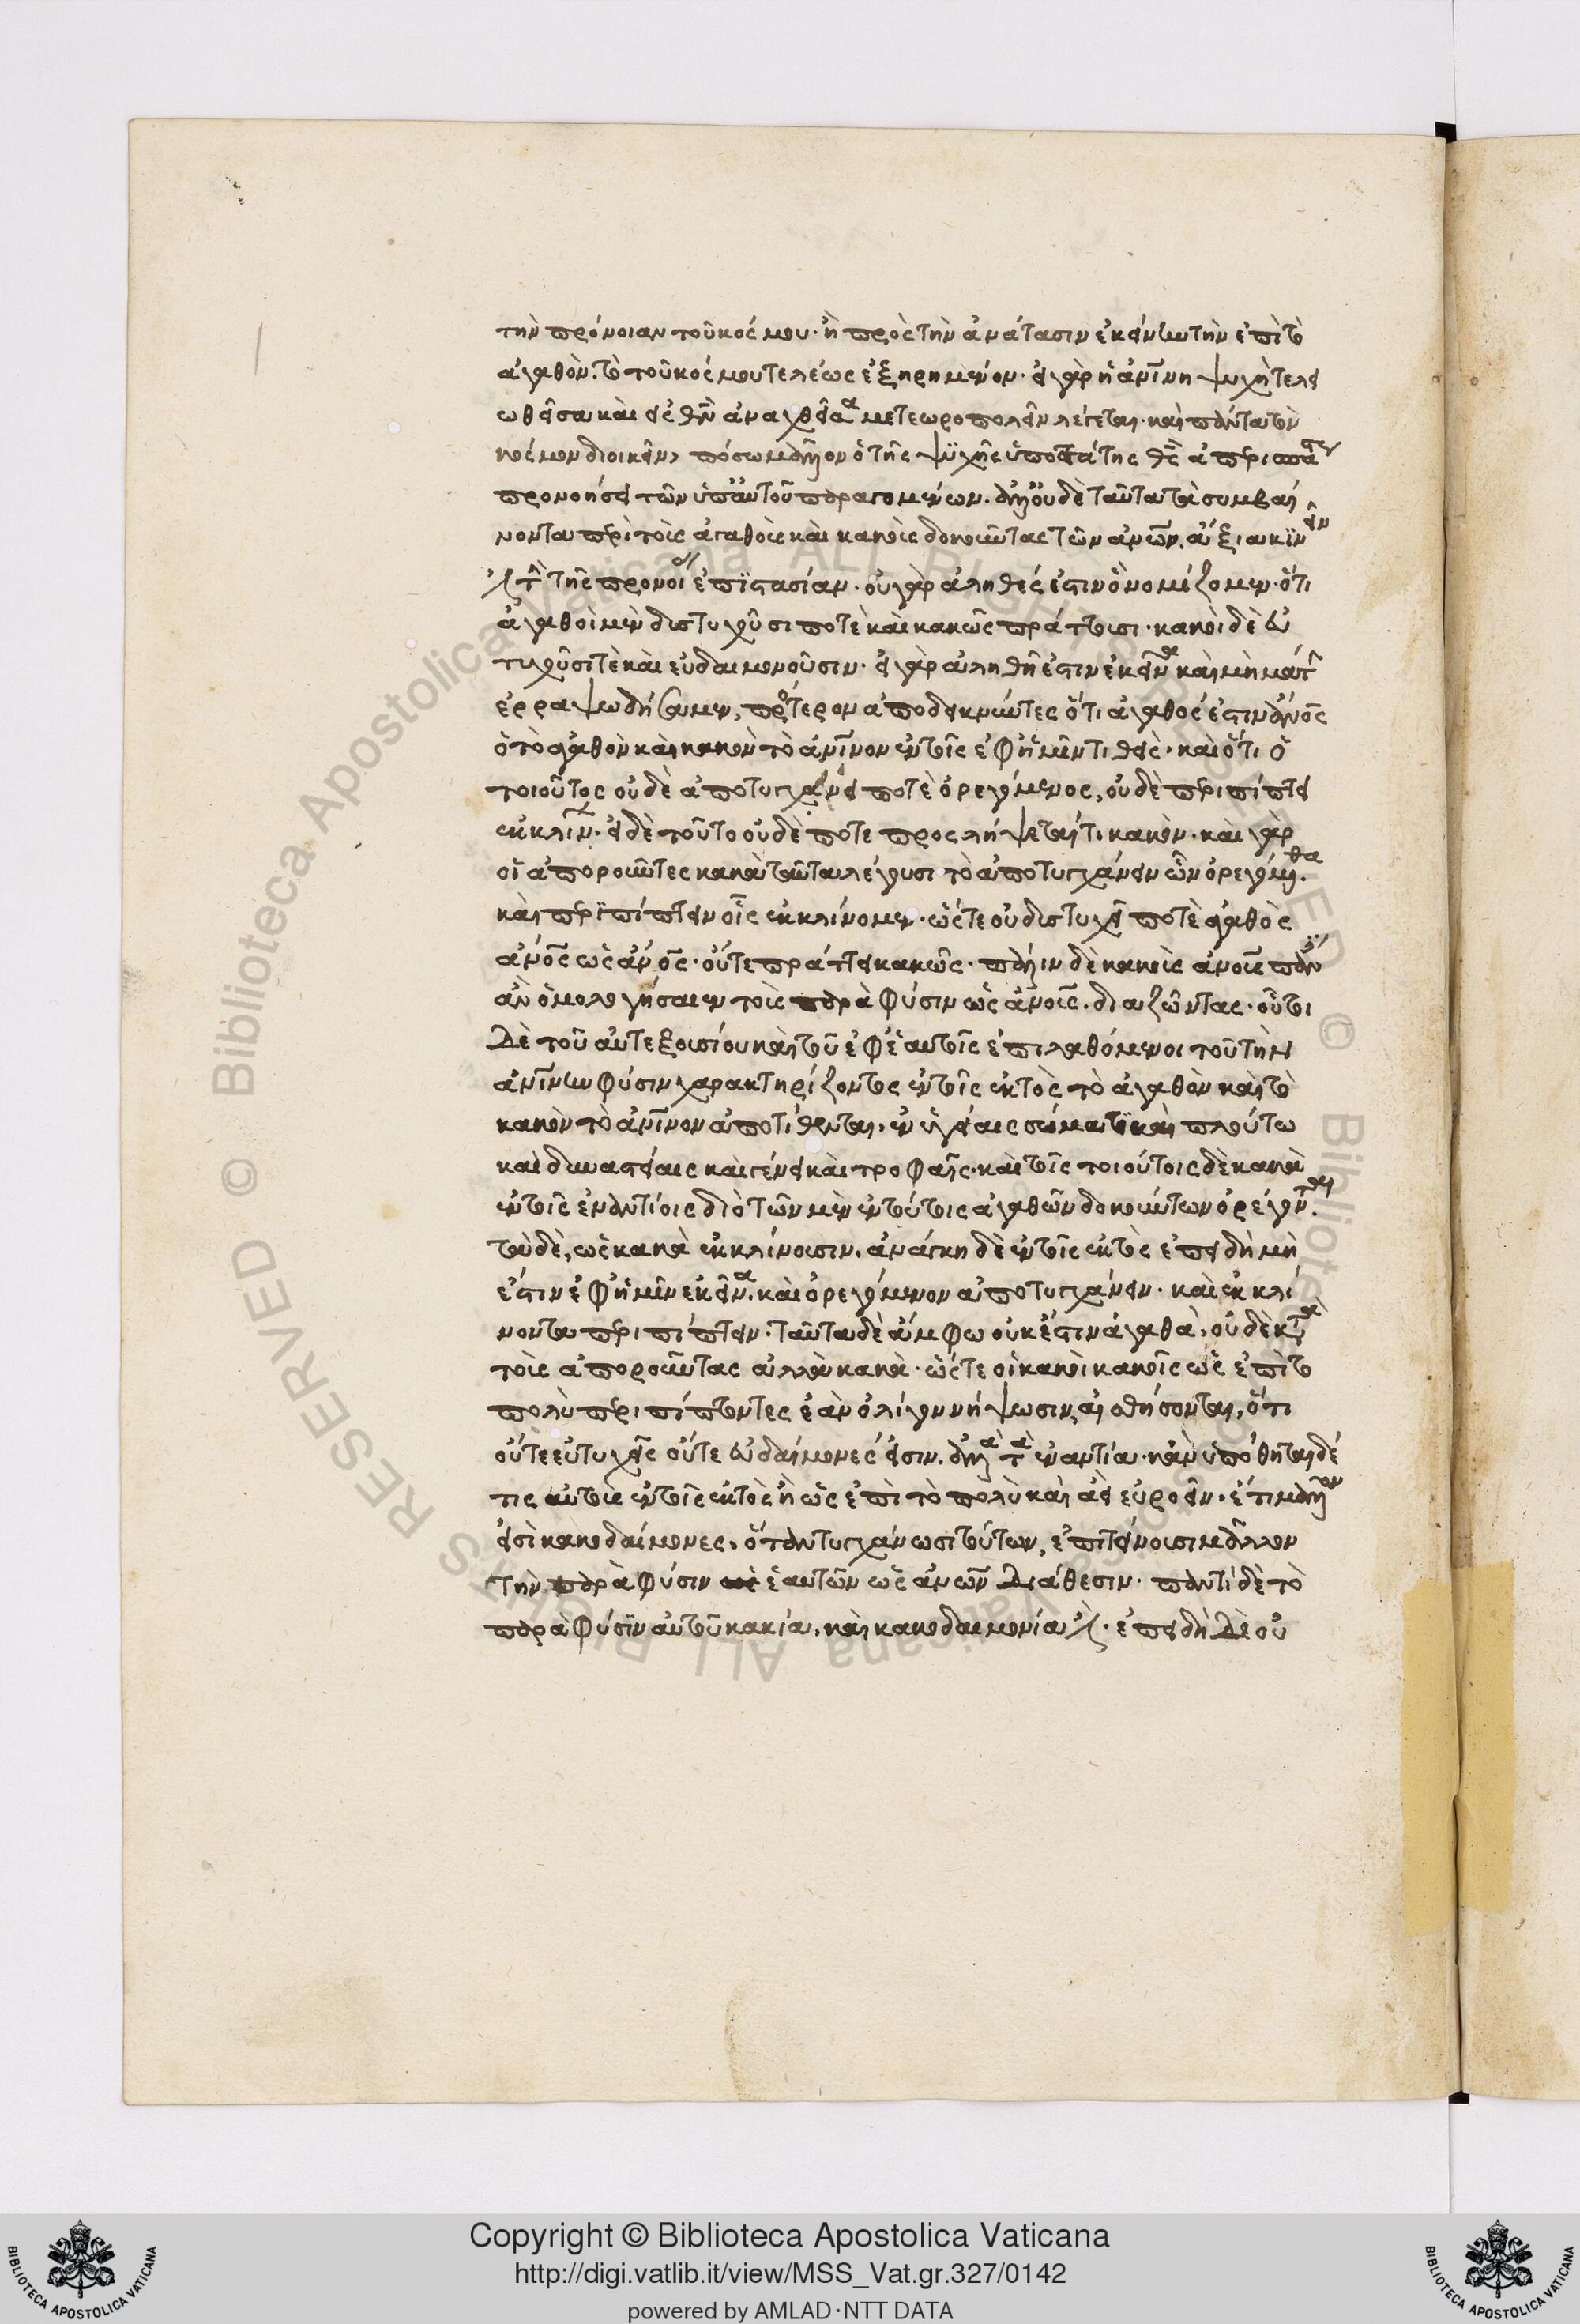 τὴν πρόνοιαν τοῦ κόσμου· ἢ πρὸς τὴν ἀνάτασιν ἐκείνων τὴν ἐπὶ τὸ
ἀγαθὸν. τὸ τοῦ κόσμου τελέως ἐξῃρημένον· εἰ γὰρ ἡ ἀνίνη ψυχὴ τελει
ωθεῖσα καὶ εἰς θν ἀναχθεῖσα μετεωροπολεῖν λέγεται· καὶ πάντα τὸν
κόσμον διοικεῖν, πόσω μᾶλλον ὁ τῆς ψυχῆς ὑποστάτης θς ἀπερισπάστως
προνοήσει τῶν ὑπ' αὐτοῦ παραγομένων. ἀλλ' οὐδὲ ταῦτα τὰ συμβαί
νοντα περὶ τοὺς ἀγαθοὺς καὶ κακοὺς δοκοῦντας τῶν ἀνων. ἄξια κινεῖν
τὴν τῆς προνοίας ἐπιστασίαν. οὐ γὰρ ἀληθές ἐστιν ὃ νομίζομεν· ὅτι
ἀγαθοὶ μὲν δυστυχοῦσι ποτὲ καὶ κακῶς πράττουσι· κακοὶ δὲ εὐ
τυχοῦσί τε καὶ εὐδαιμονοῦσιν· εἰ γὰρ ἀληθῆ ἐστιν ἐκεῖνα καὶ μὴ μάτην
ἐρραψωδήσαμεν, πρότερον ἀποδεικνύντες ὅτι ἀγαθός ἐστιν ἄνος
ὁ τὸ ἀγαθὸν καὶ κακὸν τὸ ἀνινον ἐν τοῖς ἐφ' ἡμῖν τιθεὶς· καὶ ὅτι ὁ
τοιοῦτος οὐδὲ ἀποτυγχάνει ποτὲ ὀρεγόμενος, οὐδὲ περιπίπτει
ἐκκλίνων· εἰ δὲ τοῦτο οὐδὲ ποτε προσλήψεταί τι κακόν· καὶ γὰρ
οἱ ἀποροῦντες κακὰ ταῦτα λέγουσι τὸ ἀποτυγχάνειν ὧν ὀρεγόμεθα.
καὶ περιπίπτειν οἷς ἐκκλίνομεν· ὥστε οὐ δυστυχεῖ ποτὲ ἀγαθὸς
ἄνος ὡς ἄνος· οὔτε πράττει κακῶς· πάλιν δὲ κακοὺς ἀνους πάντως
ἂν ὁμολογήσαιεν τοὺς παρὰ φύσιν ὡς ἄνους. διαζῶντας· οὗτοι
δὲ τοῦ αὐτεξουσίου καὶ τοῦ ἐφ' ἑαυτοῖς ἐπιλαθόμενοι τοῦ τὴν
ἀνίνην φύσιν χαρακτηρίζοντος ἐν τοῖς ἐκτὸς τὸ ἀγαθὸν καὶ τὸ
κακὸν τὸ ἀνινον ἀποτίθενται. ἐν ὑγείαις σώματι καὶ πλούτω
καὶ δυναστείαις καὶ γένει καὶ τροφαῖς· καὶ τοῖς τοιούτοις δὲ κακὰ
ἐν τοῖς ἐναντίοις διὸ τῶν μὲν ἐν τούτοις ἀγαθῶν δοκούντων ὀρέγονται.
τὰ δὲ, ὡς κακὰ ἐκκλίνουσιν. ἀνάγκη δὲ ἐν τοῖς ἐκτὸς ἐπειδὴ μὴ
ἐστιν ἐφ' ἡμῖν ἐκεῖνα. καὶ ὀρεγόμενον ἀποτυγχάνειν· καὶ ἐκκλί
νοντα περιπίπτειν· ταῦτα δὲ ἄμφω οὐκ ἔστιν ἀγαθὰ, οὐδὲ κατὰ
τοὺς ἀποροῦντας ἀλλὰ κακὰ· ὥστε οἱ κακοὶ κακοῖς ὡς ἐπὶ τὸ
πολὺ περιπίπτοντες ἐὰν ὀλίγον νήψωσιν, αἰσθήσονται, ὅτι
οὔτε εὐτυχεῖς οὔτε εὐδαίμονές εἰσιν. ἀλλὰ τὰ ἐναντία· κἂν ὑπόθηται δέ
τις αὐτοὺς ἐν τοῖς ἐκτὸς ἢ ὡς ἐπὶ τὸ πολὺ καὶ ἀεὶ εὐροεῖν. ἔτι μᾶλλον
εἰσὶ κακοδαίμονες. ὅταν τυγχάνωσι τούτων, ἐπιτείνουσι μᾶλλον
τὴν παρὰ φύσιν ἑαυτῶν ὡς ἀνων διάθεσιν· παντὶ δὲ τὸ
παρὰ φύσιν αὐτοῦ κακία. καὶ κακοδαιμονία ἐστὶν· ἐπειδὴ δὲ οὐ
Copyright © Biblioteca Apostolica Vaticana
http://digi.vatlib.it/view/MSS_Vat.gr.327/0142
powered by AMLAD·NTT DATA